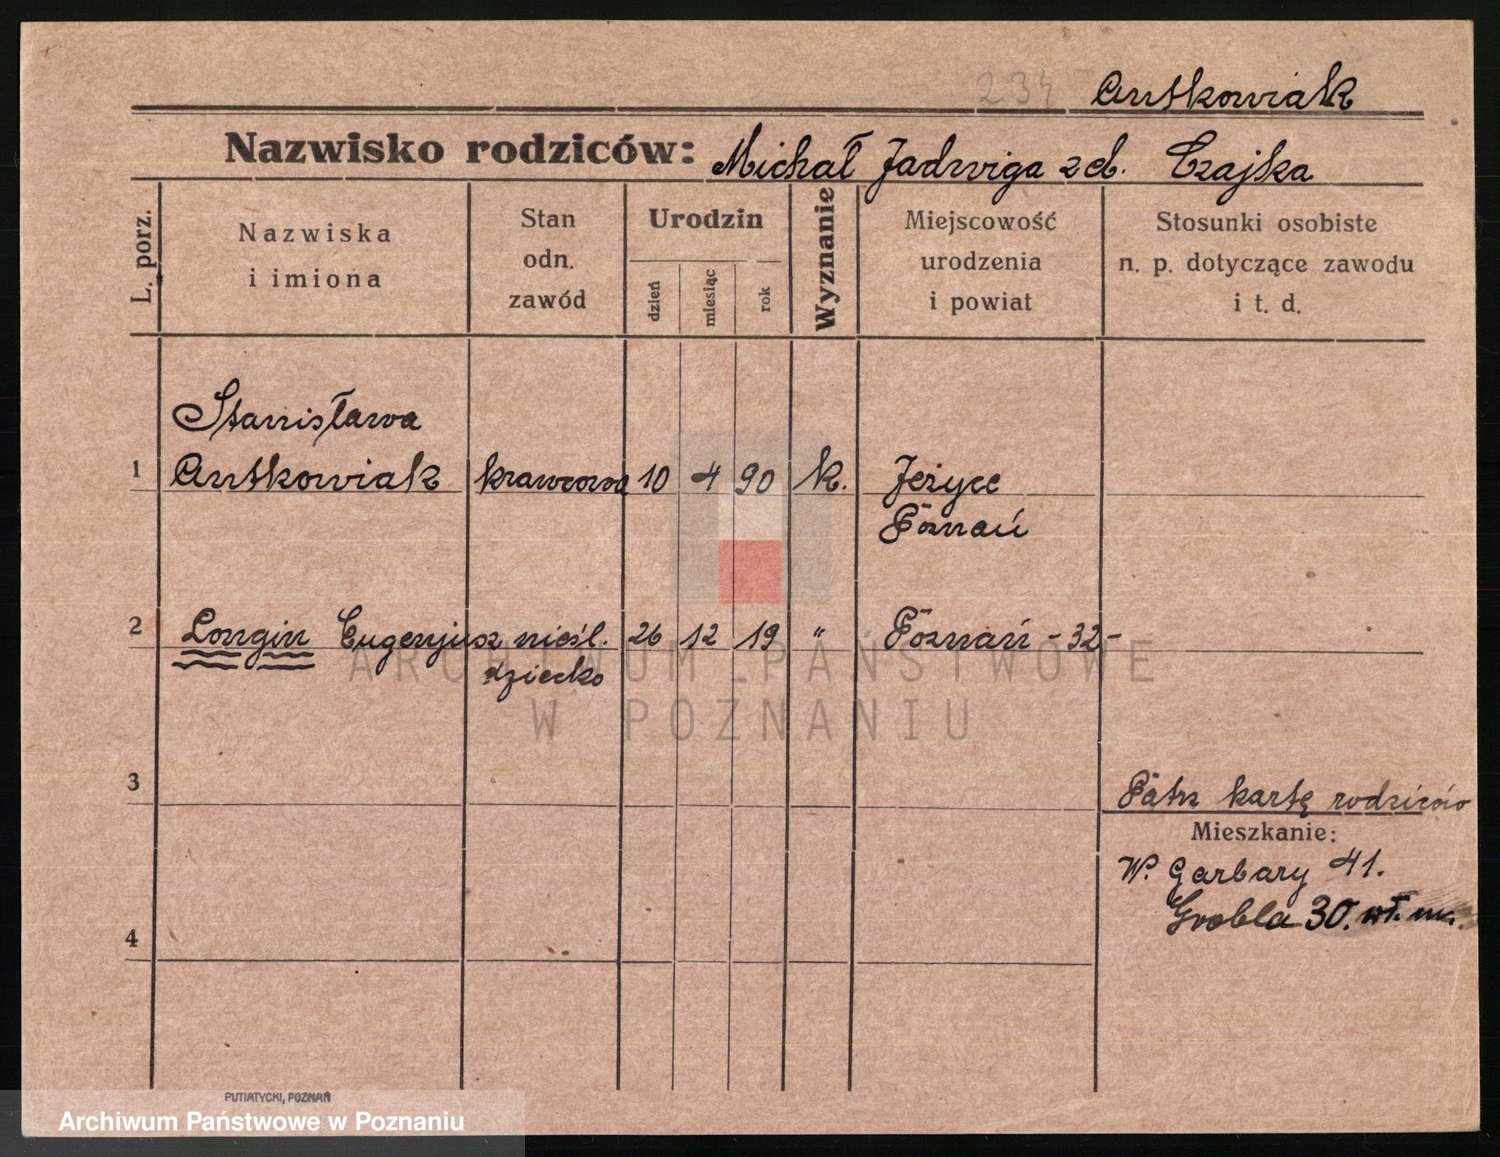 234 Antkowiak
Nazwisko rodziców: Michał Jadwiga z d. Czajka
L. porz.
Nazwiska
i imiona
Stan
odn.
zawód
Urodzin
dzień
miesiąc
rok
Wyznanie
Miejscowość
urodzenia
i powiat
Stosunki osobiste
n. p. dotyczące zawodu
i t. d.
Stanisława
1 Antkowiak krawcowa 10 4 90 k. Jeżyce
Poznań
2 Longin Eugenjusz nieśl. 26 12 19 " Poznań -32-
dziecko
ARCHIWUM PAŃSTWOWE
W POZNANIU
3
Patrz kartę rodziców
Mieszkanie:
W. Garbary 41.
Grobla 30. wł. m.
4
PUTIATYCKI, POZNAŃ
Archiwum Państwowe w Poznaniu